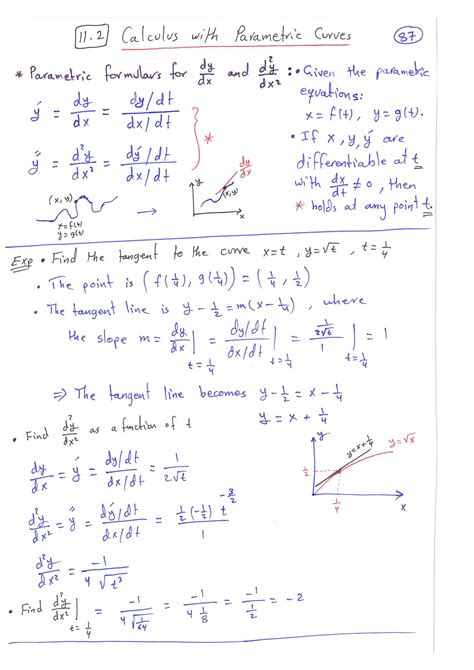 11.2 Calculus with Parametric Curves 87
* Parametric formulars for dy/dx and d²y/dx² :
• Given the parametric
equations:
x = f(t), y = g(t).
• If x, y, ý are
differentiable at t
with dx/dt ≠ 0, then
* holds at any point t.
ý = dy/dx = dy/dt / dx/dt
ÿ = d²y/dx² = dý/dt / dx/dt
*
(x,y)
x=f(t)
y=g(t)
y
dy/dx
(x,y)
x
Exp • Find the tangent to the curve x=t, y=√t, t=1/4
• The point is (f(1/4), g(1/4)) = (1/4, 1/2)
• The tangent line is y - 1/2 = m(x - 1/4), where
the slope m = dy/dx | t=1/4 = dy/dt / dx/dt | t=1/4 = 1/(2√t) / 1 | t=1/4 = 1
⇒ The tangent line becomes y - 1/2 = x - 1/4
y = x + 1/4
• Find d²y/dx² as a function of t
dy/dx = ý = dy/dt / dx/dt = 1/(2√t)
d²y/dx² = ÿ = dý/dt / dx/dt = 1/2 (-1/2) t^(-3/2) / 1
d²y/dx² = -1 / 4√t³
y
y=x+1/4
y=√x
1/2
1/4
x
• Find d²y/dx² | t=1/4 = -1 / 4√(1/64) = -1 / 4 1/8 = -1 / 1/2 = -2